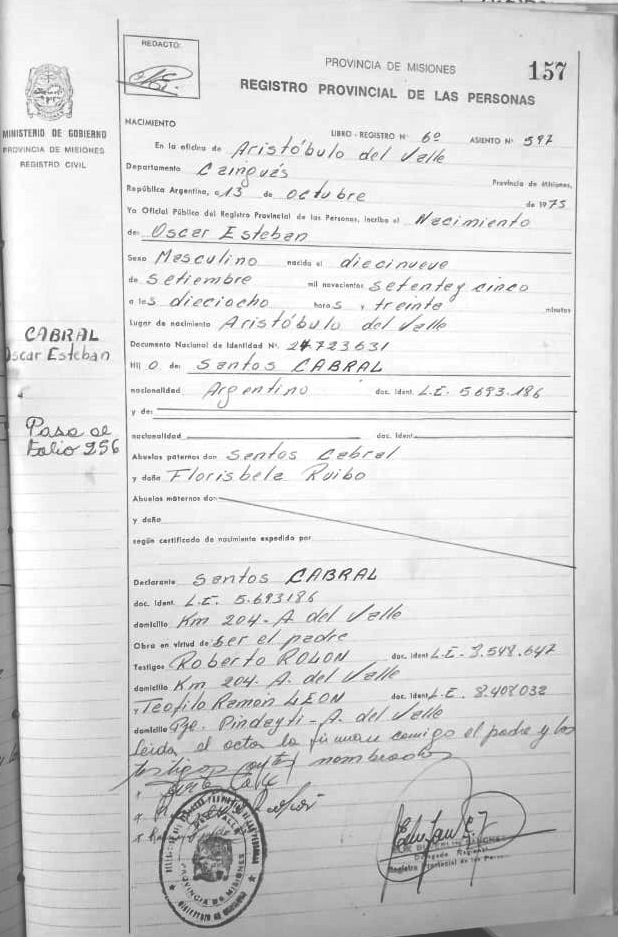 REDACTO:
PROVINCIA DE MISIONES
157
REGISTRO PROVINCIAL DE LAS PERSONAS
MINISTERIO DE GOBIERNO
PROVINCIA DE MISIONES
REGISTRO CIVIL
NACIMIENTO
LIBRO - REGISTRO Nº 6º ASIENTO Nº 597
En la oficina de Aristóbulo del Valle
Departamento Cainguás Provincia de Misiones,
República Argentina, a 13 de octubre de 1975
Yo Oficial Público del Registro Provincial de las Personas, inscribo el Nacimiento
de: Oscar Esteban
Sexo Masculino nacido el diecinueve
de setiembre mil novecientos setenta y cinco
a las dieciocho horas y treinta minutos
Lugar de nacimiento Aristóbulo del Valle
Documento Nacional de Identidad Nº. 24723631
CABRAL
Oscar Esteban
Hij o de: Santos CABRAL
nacionalidad Argentino doc. Ident. L.E. 5693.186
y de:
Pasa al
folio 256
nacionalidad doc. Ident.
Abuelos paternos don Santos Cabral
y doña Florisbela Ruibo
Abuelos maternos don
y doña
según certificado de nacimiento expedido por
Declarante Santos CABRAL
doc. Ident. L.E. 5.693186
domicilio Km 204 - A del Valle
Obra en virtud de ser el padre
Testigos Roberto ROLON doc. Ident L.E. 3.548.647
domicilio Km 204. A. del Valle
y Teofilo Ramón LEON doc. Ident. L.E. 8.408032
domicilio Pje. Pindayti - A. del Valle
Leida el acta la firman conmigo el padre y los
testigos nombrados
Delegado Regional
Registro Provincial de las Personas
PROVINCIA DE MISIONES
MINISTERIO DE GOBIERNO